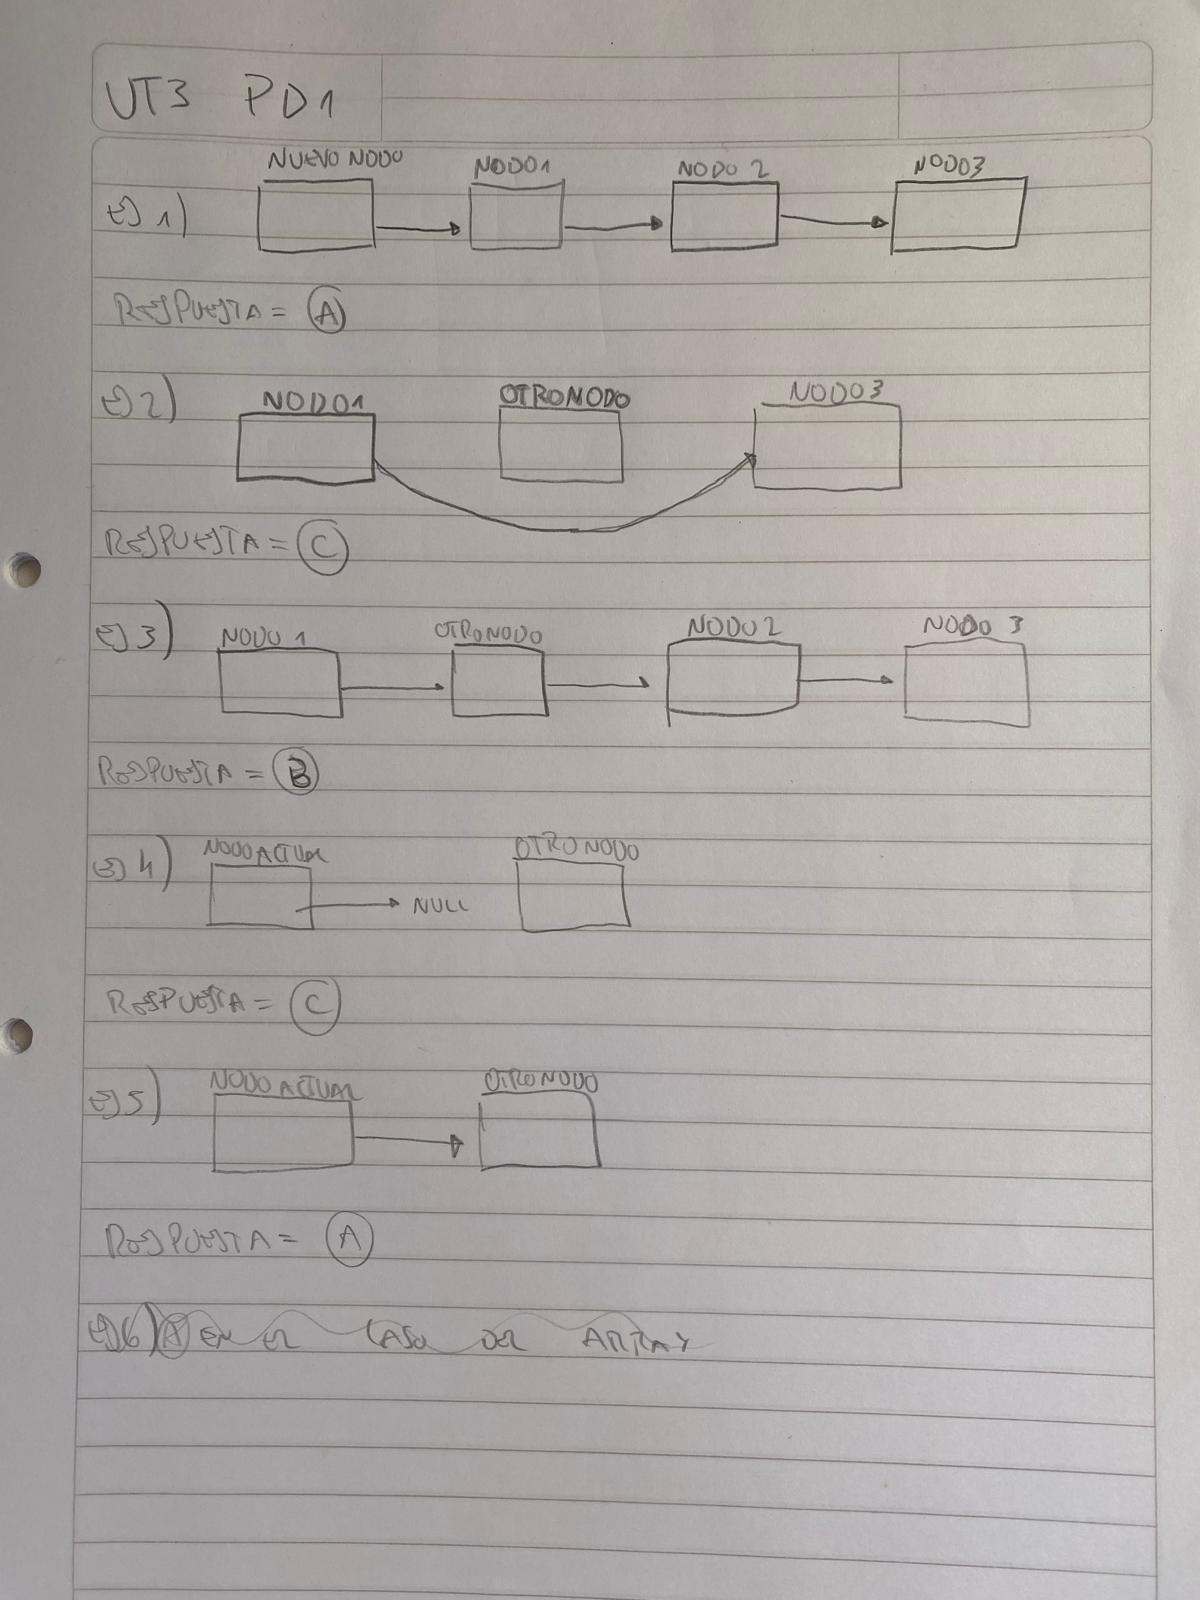 UT3 PD1
NUEVO NODO NODO1 NODO 2 NODO3
EJ 1)
RESPUESTA = A
EJ 2) NODO1 OTRO NODO NODO3
RESPUESTA = C
EJ 3) NODO 1 OTRO NODO NODO 2 NODO 3
RESPUESTA = B
EJ 4) NODO ACTUAL OTRO NODO
NULL
RESPUESTA = C
EJ 5) NODO ACTUAL OTRO NODO
RESPUESTA = A
EJ 6) A EN EL CASO DEL ARRAY